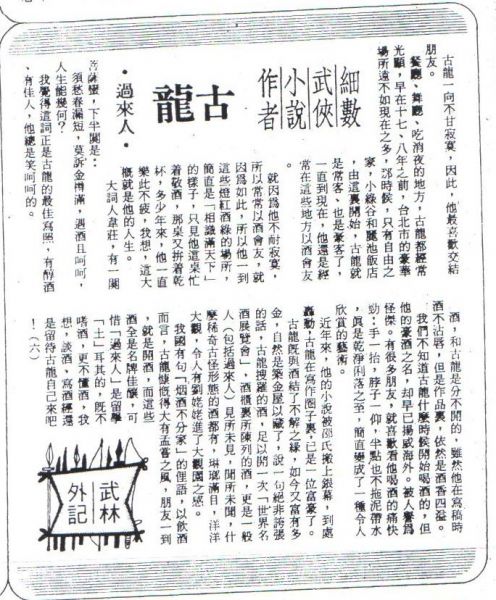 細數
武俠
小說
作者
古龍
•過來人•
古龍一向不甘寂寞，因此，他最喜歡交結
朋友。
餐廳、舞廳、吃消夜的地方，古龍都經常
光顧，早在十七、八年之前，台北市的豪華
場所遠不如現在之多，那時候，只有自由之
家，小綠谷和麗池飯店
，由這裏開始，古龍就
是常客，也是豪客了，
一直到現在，他還是經
常在這些地方以酒會友
。
就因為他不耐寂寞，
所以常常以酒會友，就
因為如此，所以他一到
這些燈紅酒綠的場所，
簡直是「相識滿天下」
的樣子，只見他這桌忙
着敬酒，那桌又拚着乾
杯，多少年來，他一直
樂此不疲，我想，這大
概就是他的人生。
大詞人韋莊，有一闋
菩薩蠻，下半闋是：
須愁春漏短，莫訴金樽滿，遇酒且呵呵，
人生能幾何？
我覺得這詞正是古龍的最佳寫照，有醇酒
、有佳人，他總是笑呵呵的。
酒，和古龍是分不開的，雖然他在寫稿時
酒不沾唇，但是作品裏，依然是酒香四溢。
我們不知道古龍什麼時候開始喝酒的，但
他的豪酒之名，却早已揚威海外。被人譽為
怪傑。有很多朋友，就喜歡看他喝酒的痛快
勁；手一抬，脖子一仰，半點也不拖泥帶水
，真是乾淨俐落之至，簡直變成了一種令人
欣賞的藝術。
近年來，他的小說被邵氏搬上銀幕，到處
轟動，古龍在寫作圈子裏，已是一位富豪了。
古龍既與酒結了不解之緣，如今又富有多
金，自然是築金屋以藏了，說一句絕非誇張
的話，古龍搜羅的酒，足以開一次「世界名
酒展覽會」，酒櫃裏所陳列的酒，更是一般
人（包括過來人）見所未見，聞所未聞，什
麼稀奇古怪形態的酒都有，琳瑯滿目，洋洋
大觀，令人有劉姥姥進了大觀園之感。
我國有句「烟酒不分家」的俚語，以飲酒
而言，古龍慷慨得大有孟嘗之風，朋友一到
，就是開酒，而這些
酒全是名牌佳釀，可
惜「過來人」是留學
「土」耳其的，既不
嗜酒，更不懂酒，我
想，談酒、寫酒經還
是留待古龍自己來吧
！（六）
武林
外記